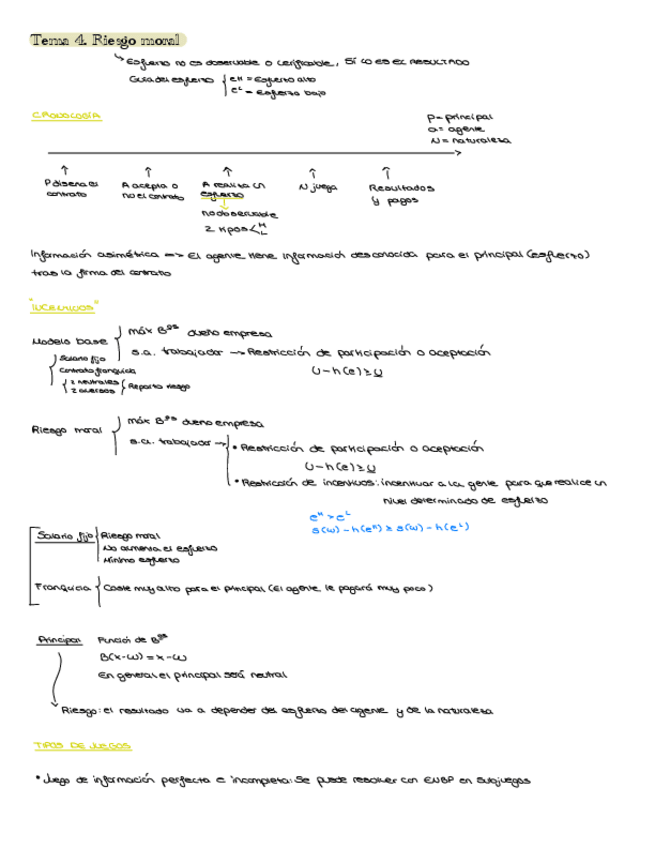 Tema 4. Riesgo moral
Esfuerzo no es observable o verificable, sí lo es el resultado
Guía del esfuerzo { eH = Esfuerzo alto
eL = Esfuerzo bajo
CRONOLOGÍA
P = principal
a = agente
N = naturaleza
P diseña el contrato
A acepta o no el contrato
A realiza un esfuerzo
N juega
Resultados y pagos
no observable
2 tipos < H L
Información asimétrica => El agente tiene información desconocida para el principal (esfuerzo)
tras la firma del contrato
"INCENTIVOS"
Modelo base { máx Bºs dueño empresa
s.a. trabajador → Restricción de participación o aceptación
U - h(e) ≥ U
Salario fijo
Contrato franquicia
2 neutrales
2 aversos } Reparto riesgo
Riesgo moral { máx Bºs dueño empresa
s.a. trabajador → • Restricción de participación o aceptación
U - h(e) ≥ U
• Restricción de incentivos: incentivar a la gente para que realice un
nivel determinado de esfuerzo
eH > eL
s(w) - h(eH) ≥ s(w) - h(eL)
Salario fijo { Riesgo moral
No aumenta el esfuerzo
Mínimo esfuerzo
Franquicia { Coste muy alto para el principal (El agente le pagará muy poco)
Principal Función de Bºs
B(x-w) = x-w
En general el principal será neutral
Riesgo: el resultado va a depender del esfuerzo del agente y de la naturaleza
TIPOS DE JUEGOS
• Juego de información perfecta e incompleta: Se puede resolver con ENBP en subjuegos